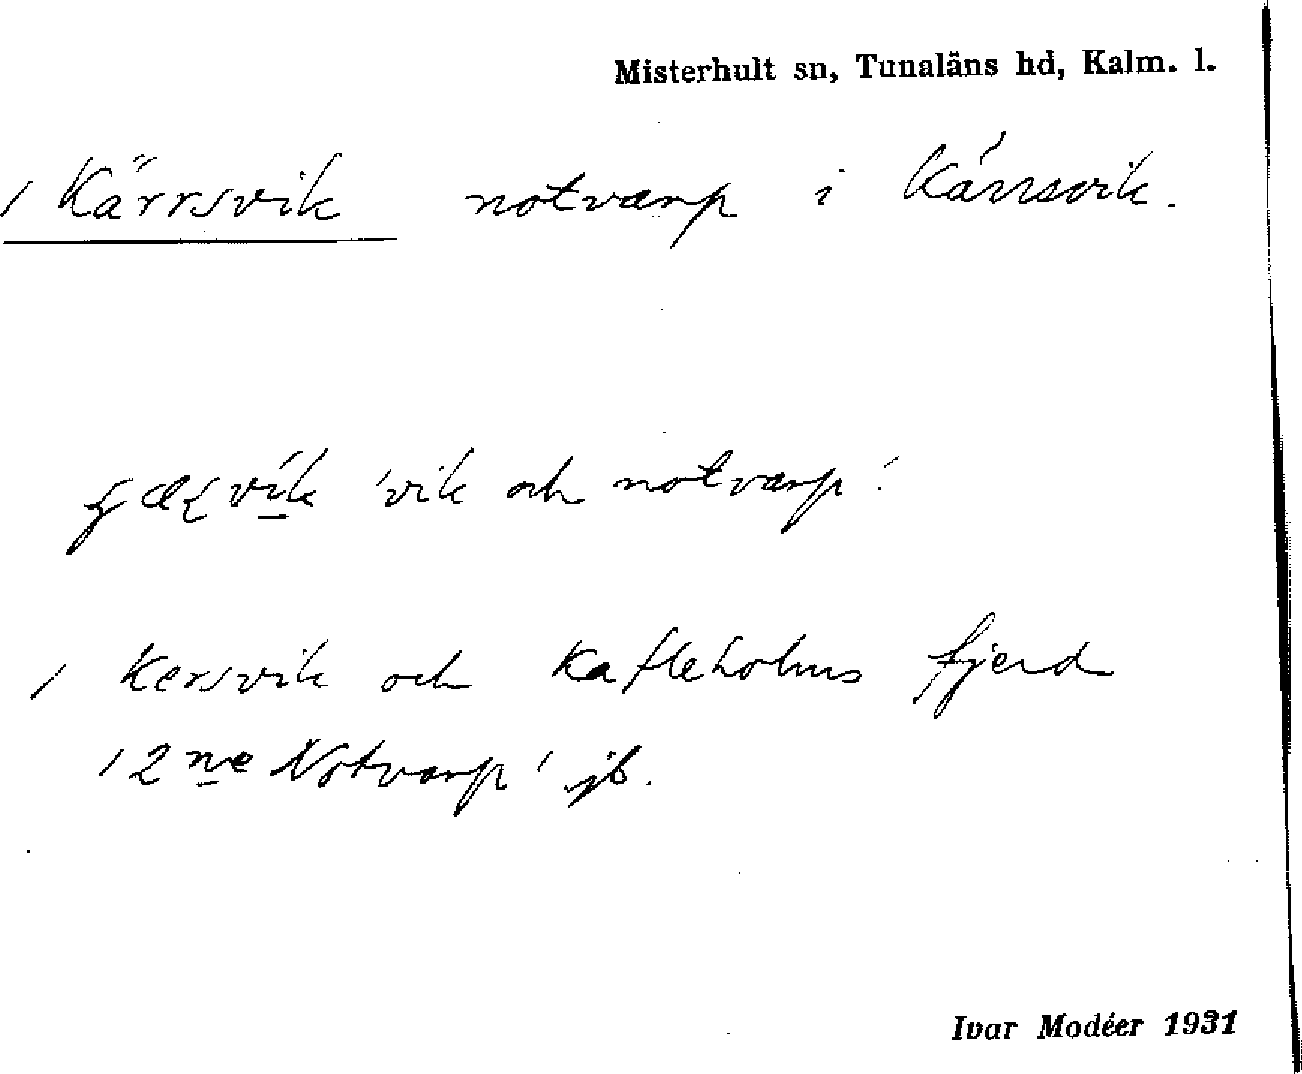 Misterhult sn, Tunaläns hd, Kalm. l.
/ Kärrsvik notvarp i Kärrsvik.
vik 'vik och notvarp'.
/ Kersvik och Kafleholms fjerd
/ 2ne Notvarp' jb.
Ivar Modéer 1931